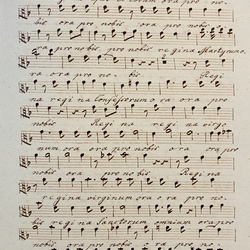 ora pro no-
bis ora pro nobis ora pro nobis
ora pro nobis, pro nobis regina Martyrum o-
ra ora pro no- bis. Regi
na regina Confessorum o ra ora pro
nobis Regi na regi na virgi
num ora ora pro nobis ora ora pro
nobis ora pro nobis Regi na
regina virginum ora o ra pro no-
bis regina Sanctorum omnium ora pro
nobis ora ora pro nobis ora